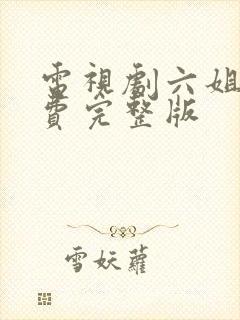 電視劇六姐
費完整版
雪妖蘿